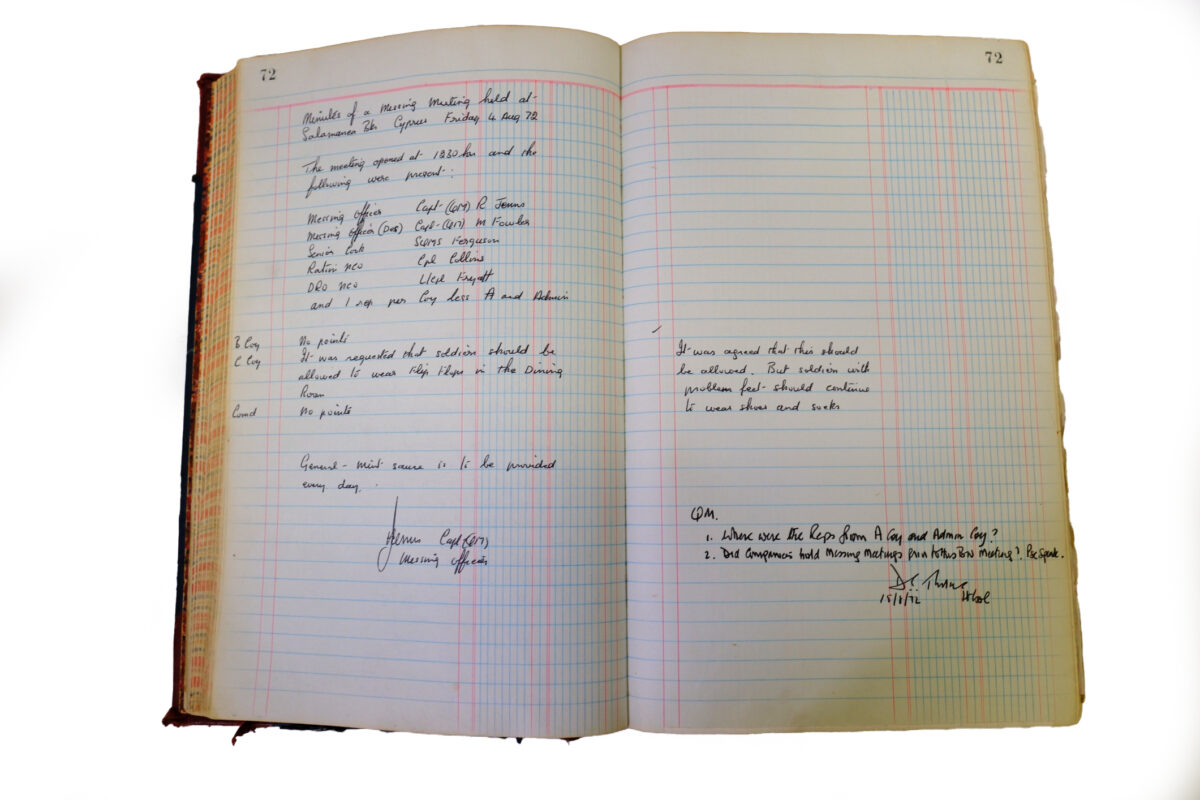 72
Minutes of a Messing Meeting held at
Salamanca Bks Cyprus Friday 4 Aug 72
The meeting opened at 1230 hrs and the
following were present:
Messing Officer Capt (QM) R Jenns
Messing Officer (Des) Capt (QM) M Fowler
Senior Cook SQMS Ferguson
Ration NCO Cpl Collins
DRO NCO L/Cpl Fryatt
and 1 rep per Coy less A and Admin
B Coy No points
C Coy It was requested that soldiers should be
allowed to wear Flip Flops in the Dining
Room
Comd No points
General - Mint sauce is to be provided
every day.
Jenns Capt (QM)
Messing Officer
72
It was agreed that this should
be allowed. But soldiers with
problem feet should continue
to wear shoes and socks
QM.
1. Where were the Reps from A Coy and Admin Coy?
2. Did Companies hold Messing Meetings prior to this Bn Meeting? Pse speak.
15/8/72 Lt Col